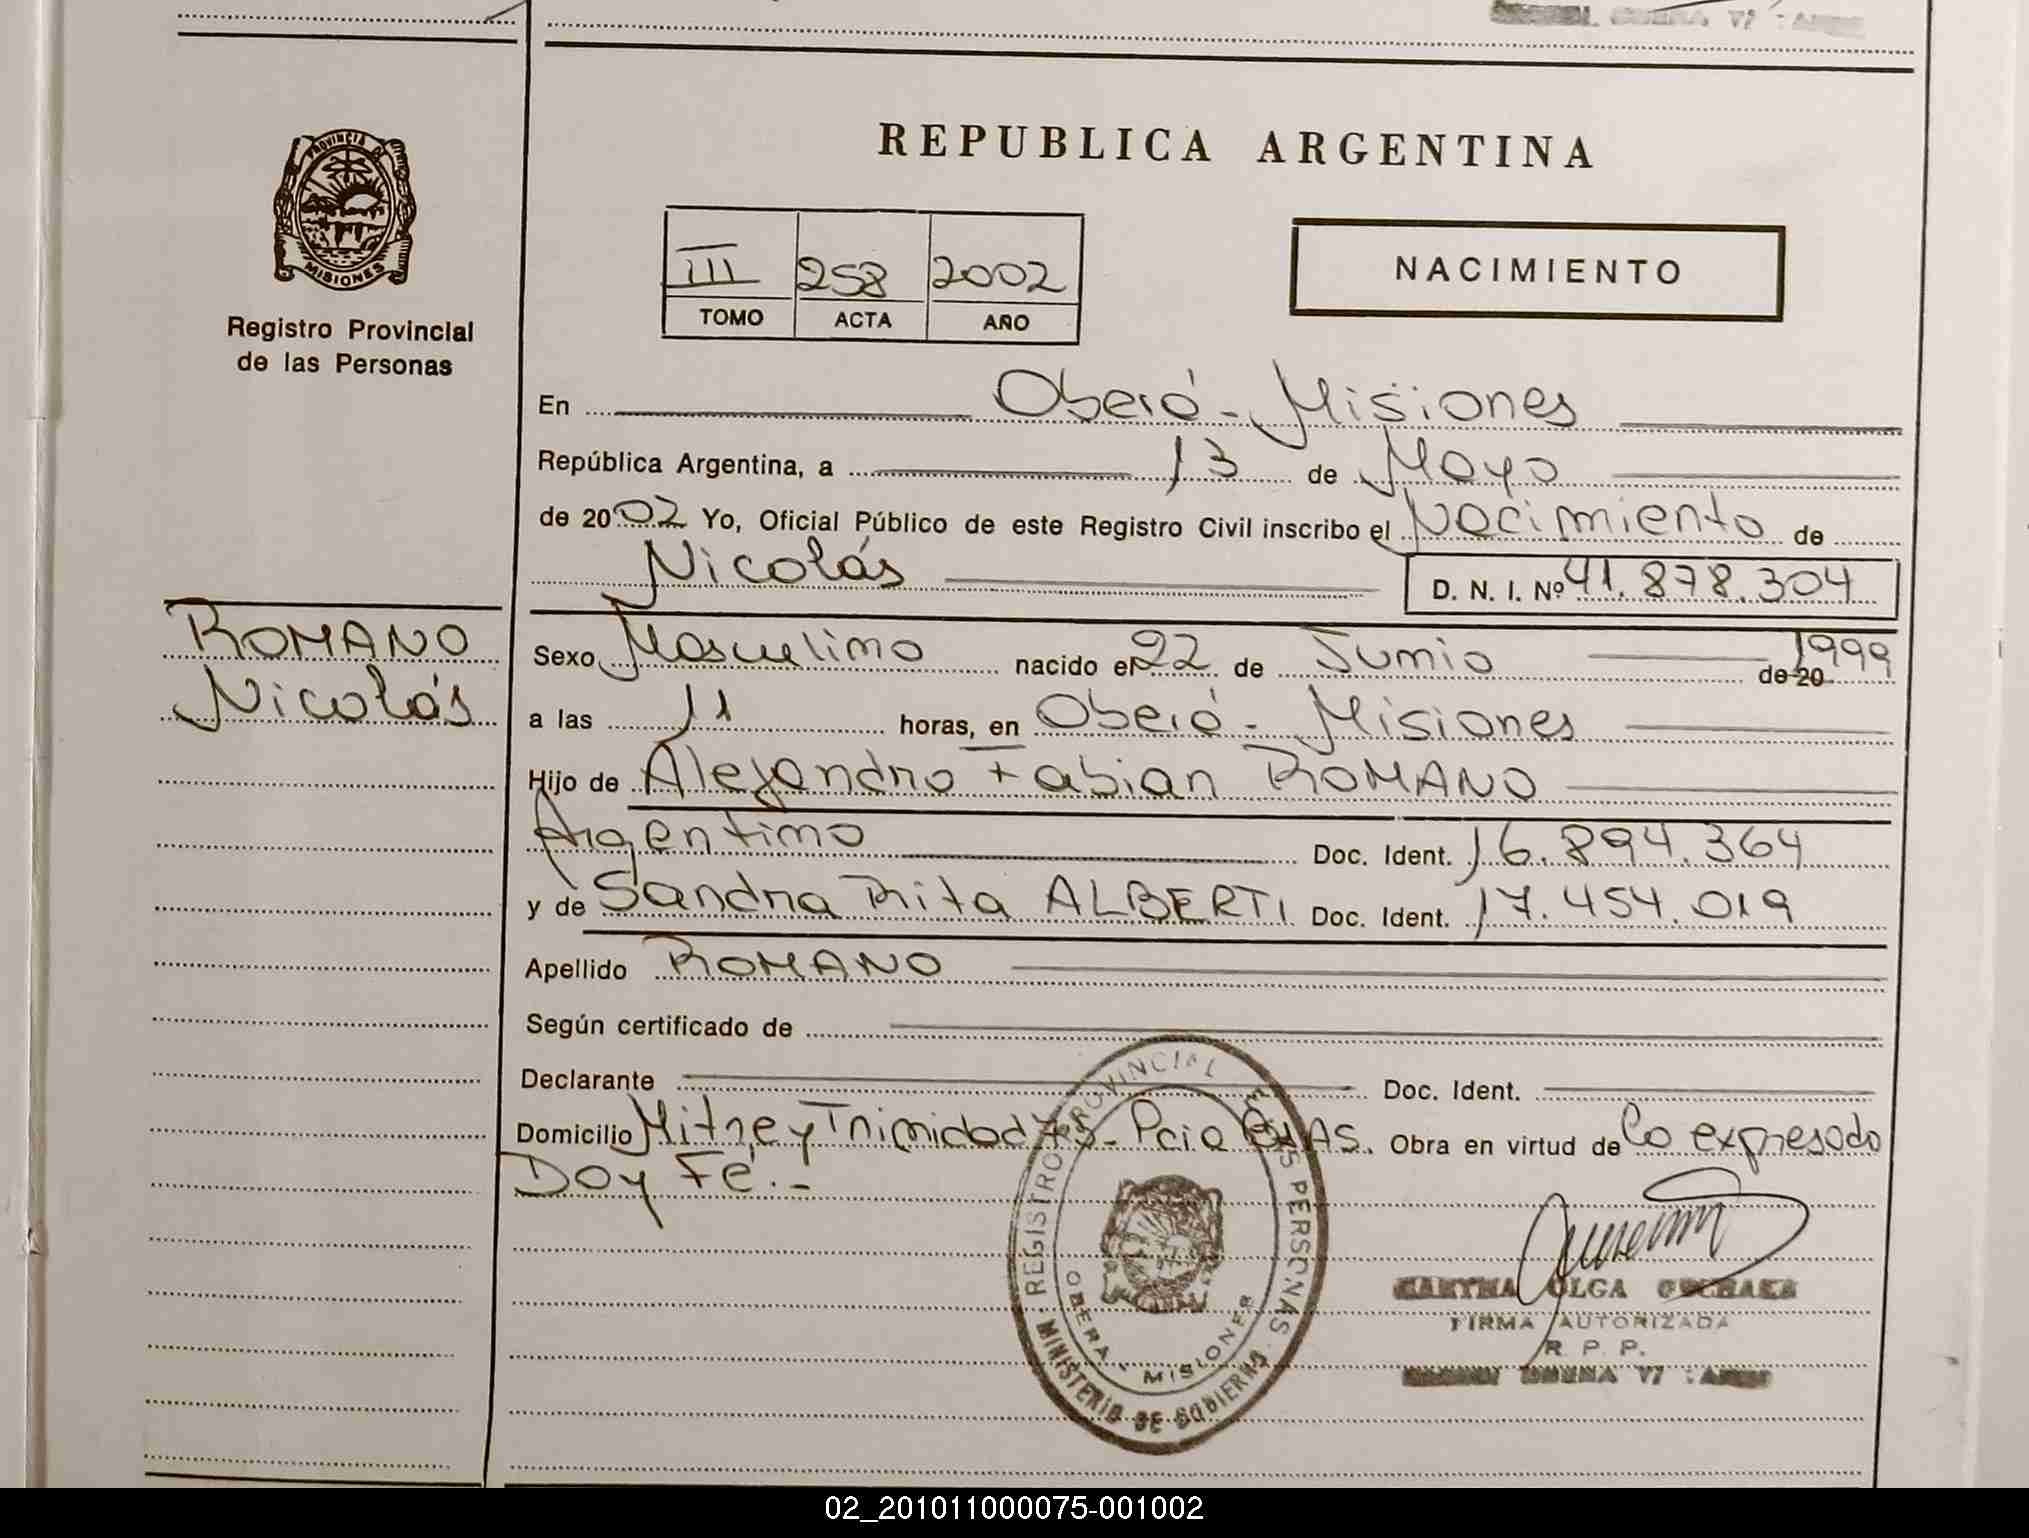 REPUBLICA ARGENTINA
PROVINCIA DE
MISIONES
Registro Provincial
de las Personas
III 258 2002
TOMO ACTA AÑO
NACIMIENTO
En Oberá - Misiones
República Argentina, a 13 de Mayo
de 2002 Yo, Oficial Público de este Registro Civil inscribo el Nacimiento de
Nicolás D. N. I. Nº 41.878.304
ROMANO
Nicolás
Sexo Masculino nacido el 22 de Junio de 20 1999
a las 11 horas, en Oberá - Misiones
Hijo de Alejandro Fabian ROMANO
Argentino Doc. Ident. 16.894.364
y de Sandra Rita ALBERTI Doc. Ident. 17.454.019
Apellido ROMANO
Según certificado de
Declarante Doc. Ident.
Domicilio Mitre y Trinidad - Pcia Bs AS. Obra en virtud de lo expresado
Doy Fé.-
REGISTRO PROVINCIAL DE LAS PERSONAS
OBERA - MISIONES
MINISTERIO DE GOBIERNO
MARTHA OLGA
FIRMA AUTORIZADA
R. P. P.
02_201011000075-001002